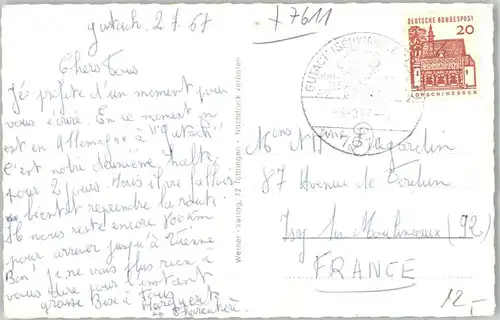 Gutach. 2.7.67
+7611
Chers Tous
Je profite d'un moment pour
vous écrire. En ce moment on
est en Allemagne à "Gutach"
C'est notre deuxième halte
pour 2 jours. Mais il va falloir
bientôt reprendre la route.
Il nous reste encore 800 km
pour arriver jusqu'à Vienne
Bon! Je ne vois plus rien à
vous dire pour l'instant
grosse Bise à Tous
Werner-Verlag, 72 Tuttlingen - Nachdruck verboten
GUTACH (SCHWARZWALD
DEUTSCHE BUNDESPOST
20
LORSCH/HESSEN
87 Avenue de Verdun
Issy les Moulineaux (92)
FRANCE
12,-